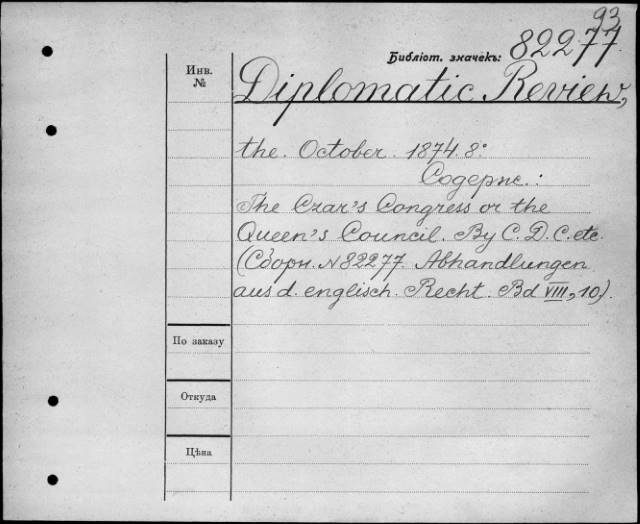 93
Библіот. значекъ: 82277.
Инв.
№
Diplomatic Review,
the. October. 1874. 8º
Содерж.:
The Czar's Congress or the
Queen's Council. By C. D. C. etc.
(Сборн. № 82277. Abhandlungen
aus d. englisch. Recht. Bd VIII, 10).
По заказу
Откуда
Цѣна